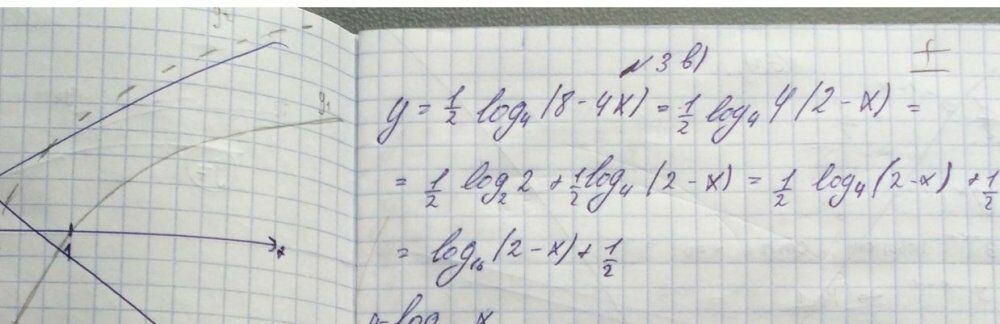 y₂
y₁
1
x
№3 в)
y = 1/2 log₄(8 - 4x) = 1/2 log₄ 4(2 - x) =
= 1/2 log₂ 2 + 1/2 log₄(2 - x) = 1/2 log₄(2 - x) + 1/2
= log₁₆(2 - x) + 1/2